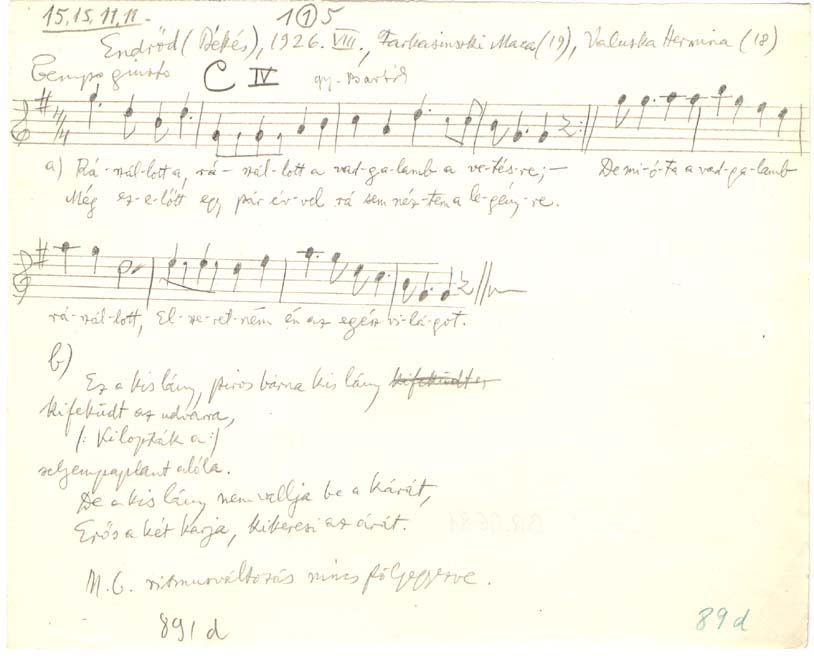 15, 15, 11, 11.
1 1 5
Endrőd (Békés), 1926. VIII., Farkasinszki Maca (19), Valuska Hermina (18)
Tempo giusto C IV gy. Bartók
4/4
a) Rá-szál-lott a, rá-szál-lott a vad-ga-lamb a ve-tés-re;- De mi-ó-ta a vad-ga-lamb
Még ez-e-lőtt egy pár év-vel rá sem néz-tem a le-gény-re.
rá-szál-lott, El-ze-ret-ném én az egész vi-lá-got.
b)
Ez a kis lány, piros barna kis lány kifeküdt
kifeküdt az udvarra,
/: Kilopták a :/
selyempaplant alóla.
De a kis lány nem vallja be a kárát,
Erős a két karja, kikeresi az árát.
ritmusváltozás nincs följegyezve.
891 d
89 d